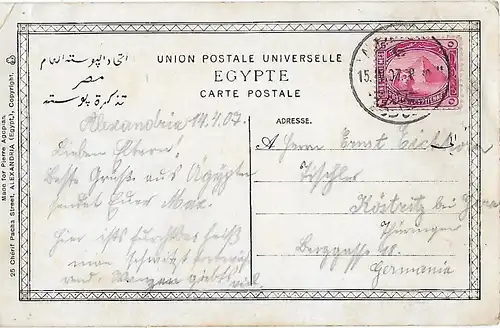 اتحاد البوستة العام
مصر
تذكرة بوستة
UNION POSTALE UNIVERSELLE
EGYPTE
CARTE POSTALE
ADRESSE.
Made for Pierre Agopian,
25 Chérif Pacha Street, ALEXANDRIA (Egypt), Copyright.
15. 07
Alexandria 14.4.07.
Lieben Eltern!
Beste Grüße aus Ägypten
sendet Euer Max.
Hier ists furchtbar heiß
man schwitzt
und
viel
A Herrn Ernst
Tischler
Köstritz bei Gera
Thüringen
Berggasse 48.
Germania